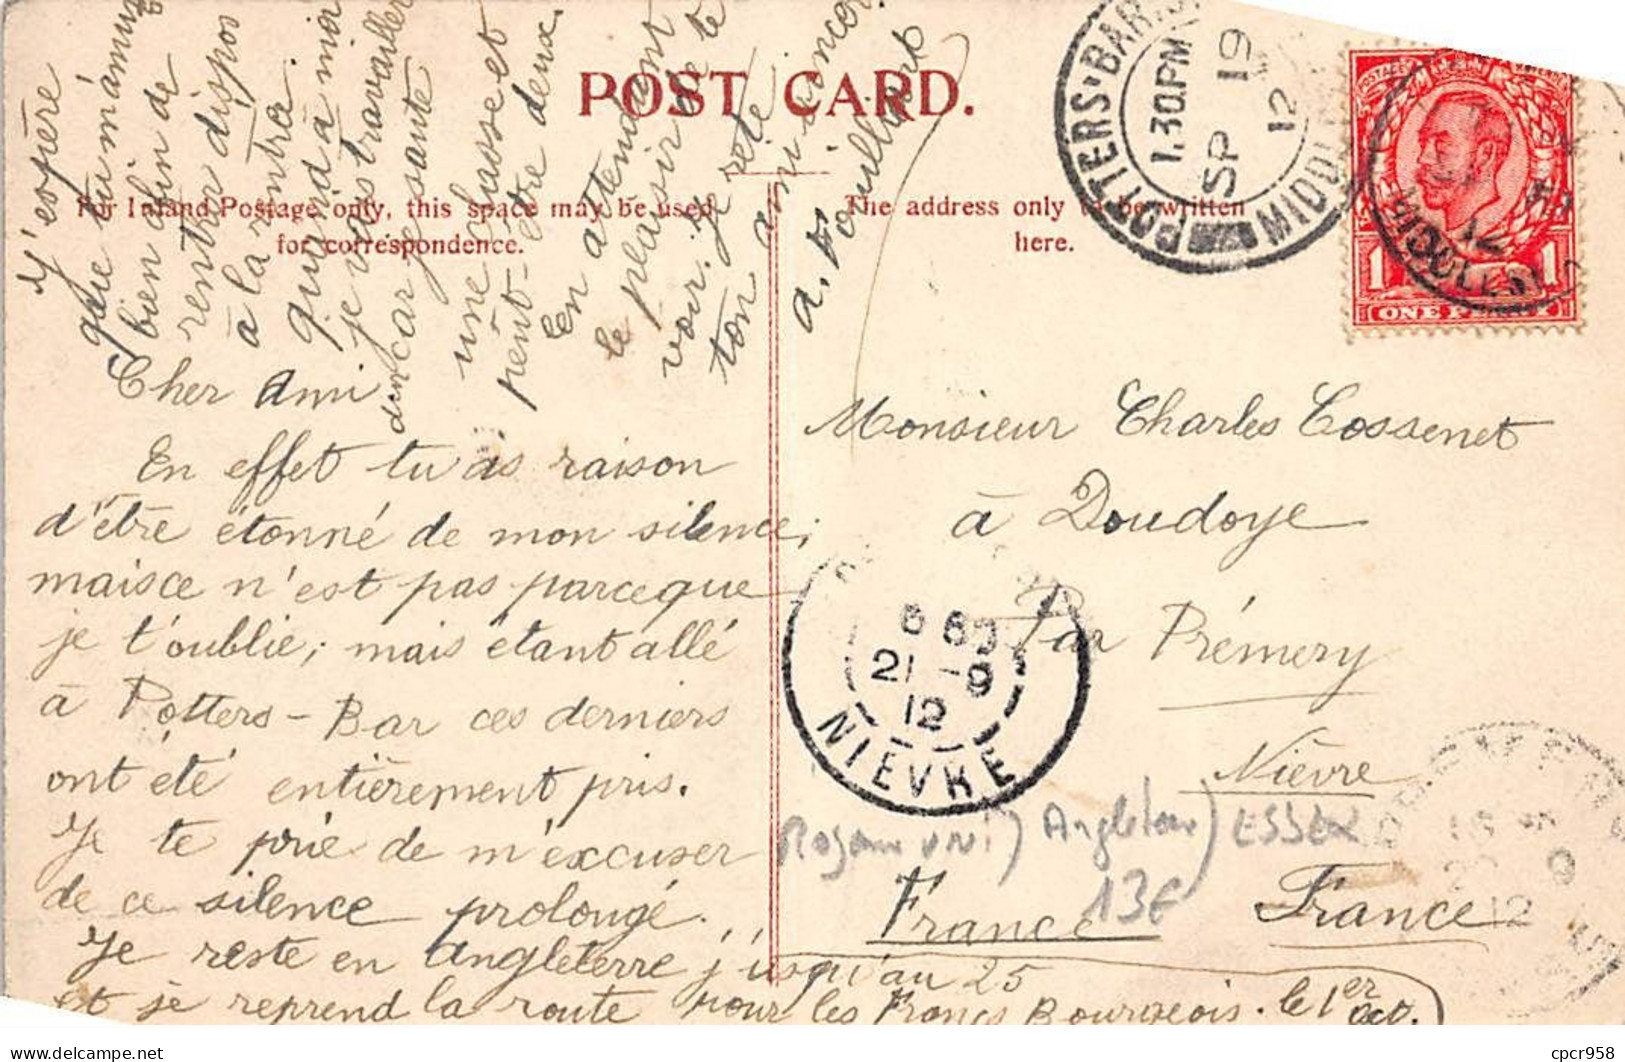 POST CARD.
For Inland Postage only, this space may be used
for correspondence.
The address only to be written
here.
POTTERS·BAR.S
1.30PM
SP 19
12
MIDDL
MIDDLESE
1 1
ONE PENNY
Cher Ami
En effet tu as raison
d'être étonné de mon silence;
mais ce n'est pas parce que
je t'oublie; mais étant allé
à Potters-Bar ces derniers
ont été entièrement pris.
Je te prie de m'excuser
de ce silence prolongé.
Je reste en Angleterre j'usqu'au 25
et je reprend la route pour les Francs Bourgeois. le 1er oct.
J'espère
que tu m'amus
bien afin de
rentrer dispos
à la rentrée.
quand à moi
je vais travailler
dur car je saute
une classe et
peut-être deux.
En attendant
le plaisir de te
voir. je reste
ton ami sincer
a. Fouilleul
Monsieur Charles Cossenet
à Doudoye
Par Prémery
Nièvre
France
France
21 -9
12
NIEVRE
Royaume uni) Angleterre) ESSEX
13€
12
cpcr958